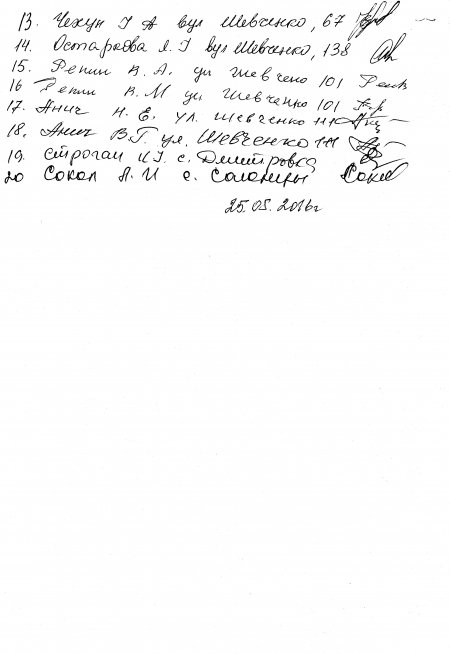 13. Чехун І А вул Шевченко, 67
14. Остапкова Л. І вул Шевченко, 138
15. Репин В. А. ул Шевчено 101 Реп
16 Репин В. М ул Шевченко 101
17. Анич Н. Е. ул. Шевченко 111
18. Анич В.Г. ул. Шевченко 111
19. Строган И. с. Дмитровка
20 Сокол Л. И с. Солоницы Сокол
25.05.2016г